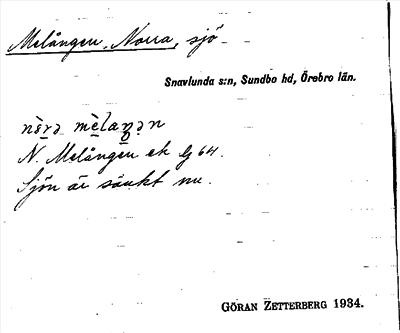 Melången, Norra, sjö
Snavlunda s:n, Sundbo hd, Örebro län.
nɛ̀rə mɛ̀laŋən
N. Melången ek bl 64.
Sjön är sänkt nu.
GÖRAN ZETTERBERG 1934.